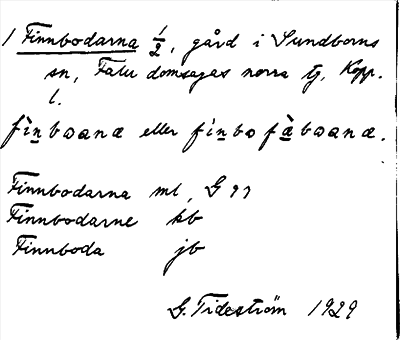 1 Finnbodarna 1/2, gård i Sundborns
sn, Falu domsagas norra tg, Kopp.
l.
fìn̲bɷanæ eller fìn̲bo fæ̀bɷanæ.
Finnbodarna ml, G 97
Finnbodarne kb
Finnboda jb
G. Tideström 1929